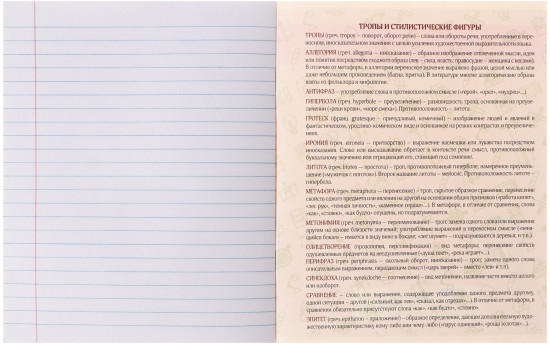 ТРОПЫ И СТИЛИСТИЧЕСКИЕ ФИГУРЫ
ТРОПЫ (греч. tropos — поворот, оборот речи) — слова или обороты речи, употребленные в пере-
носном, иносказательном значении с целью усиления художественной выразительности языка.
АЛЛЕГОРИЯ (греч. allegoria — иносказание) — образное изображение отвлеченной мысли, идеи
или понятия посредством сходного образа (лев — сила, власть; правосудие — женщина с весами).
В отличие от метафоры, в аллегории переносное значение выражено фразой, целой мыслью или
даже небольшим произведением (басня, притча). В литературе многие аллегорические образы
взяты из фольклора и мифологии.
АНТИФРАЗ — употребление слова в противоположном смысле («герой», «орел», «мудрец»...).
ГИПЕРБОЛА (греч. hyperbole — преувеличение) — разновидность тропа, основанная на преуве-
личении («реки крови», «море смеха»). Противоположность — литота.
ГРОТЕСК (франц. grotesque — причудливый, комичный) — изображение людей и явлений в
фантастическом, уродливо-комическом виде и основанное на резких контрастах и преувеличе-
ниях.
ИРОНИЯ (греч. eironeia — притворство) — выражение насмешки или лукавство посредством
иносказания. Слово или высказывание обретает в контексте речи смысл, противоположный
буквальному значению или отрицающий его, ставящий под сомнение.
ЛИТОТА (греч. litotes — простота) — троп, противоположный гиперболе; намеренное преумень-
шение («мужичок с ноготок»). Второе название литоты — мейозис. Противоположность литоте —
гипербола.
МЕТАФОРА (греч. metaphora — перенесение) — троп, скрытое образное сравнение, перенесение
свойств одного предмета или явления на другой на основании общих признаков («работа кипит»,
«лес рук», «темная личность», «каменное сердце»...). В метафоре, в отличие от сравнения, слова
«как», «словно», «как будто» опущены, но подразумеваются.
МЕТОНИМИЯ (греч. metonymia — переименование) — троп; замена одного слова или выражения
другим на основе близости значений; употребление выражений в переносном смысле («пеня-
щийся бокал» — имеется в виду вино в бокале; «лес шумит» — подразумеваются деревья; и т.п.).
ОЛИЦЕТВОРЕНИЕ (прозопопея, персонификация) — вид метафоры; перенесение свойств
одушевленных предметов на неодушевленные («душа поет», «река играет»...).
ПЕРИФРАЗ (греч. periphrasis — окольный оборот, иносказание) — троп; замена одного слова
описательным выражением, передающим смысл («царь зверей» — вместо «лев» и т.п.).
СИНЕКДОХА (греч. synekdoche — соотнесение) — вид метонимии, название части вместо целого
или наоборот.
СРАВНЕНИЕ — слово или выражение, содержащее уподобление одного предмета другому,
одной ситуации — другой («сильный, как лев», «сказал, как отрезал»...). В отличие от метафоры, в
сравнении обязательно присутствуют слова «как», «как будто», «словно».
ЭПИТЕТ (греч. epitheton — приложение) — образное определение, дающее дополнительную худо-
жественную характеристику кому-либо или чему-либо («парус одинокий», «роща золотая»...).